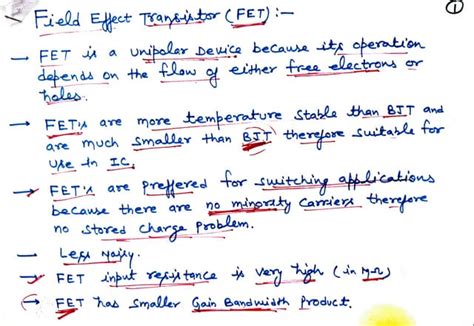 ①
Field Effect Transistor (FET) :-
→ FET is a Unipolar Device because its operation
depends on the flow of either free electrons or
holes.
→ FET's are more temperature stable than BJT and
are much smaller than BJT therefore suitable for
use in IC.
→ FET's are preffered for switching applications
because there are no minority carriers therefore
no stored charge problem.
→ Less Noisy.
→ FET input resistance is very high (in MΩ)
→ FET has smaller Gain Bandwidth Product.